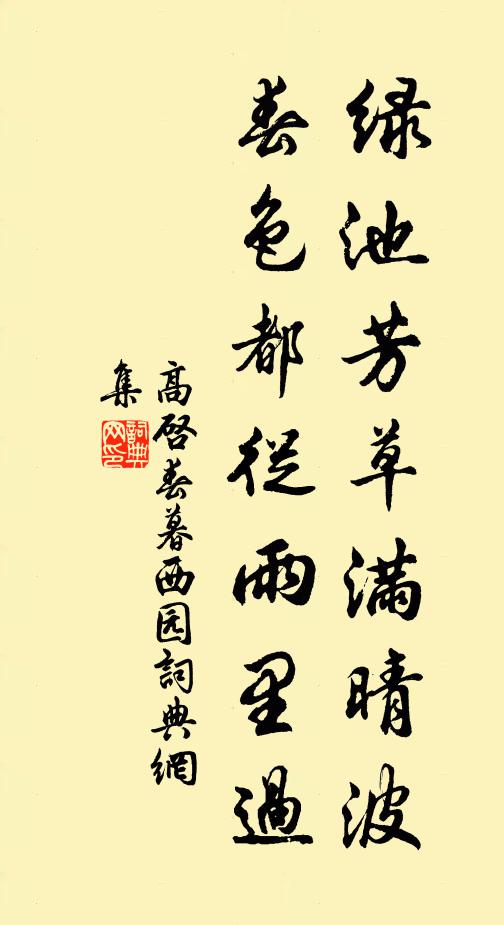 绿池芳草满晴波
春色都從雨里過
高啓春暮西园詞典網
集
詞典
网印